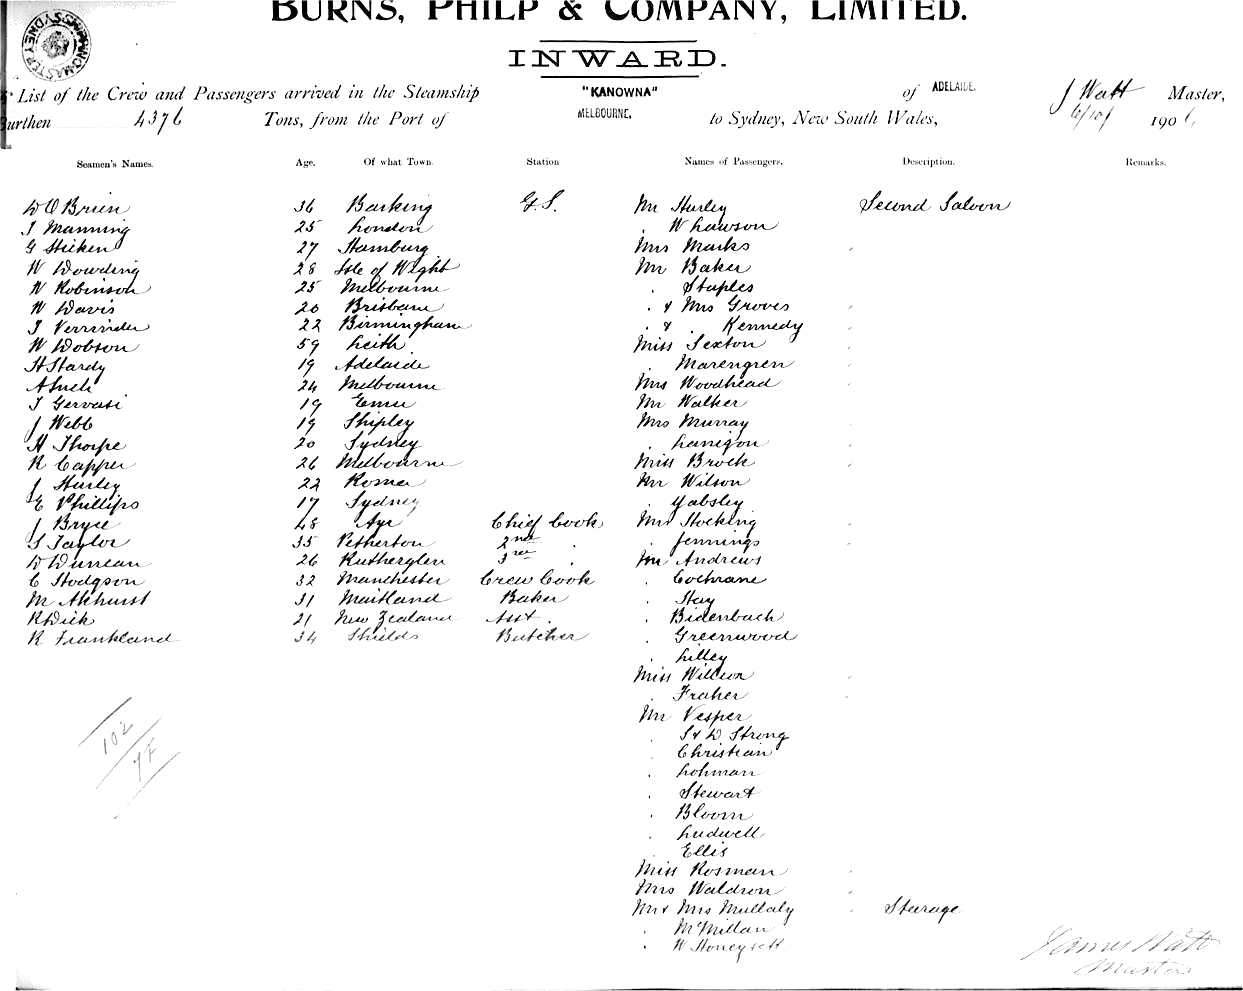 BURNS, PHILP & COMPANY, LIMITED.
INWARD.
List of the Crew and Passengers arrived in the Steamship "KANOWNA" of ADELAIDE. J Watt Master,
Burthen 4376 Tons, from the Port of MELBOURNE, to Sydney, New South Wales, 6/10/ 1906
Seamen's Names. Age. Of what Town. Station Names of Passengers. Description. Remarks.
D O'Brien 36 Barking G.S. Mr Hurley Second Saloon
J Manning 25 London . W Lawson
G Sticken 27 Hamburg Mrs Marks
W Dowding 28 Isle of Wight Mr Baker
W Robinson 25 Melbourne . Staples
W Davis 20 Brisbane . & Mrs Groves
J Verrinder 22 Birmingham . & . Kennedy
W Dobson 59 Leith Miss Sexton
H Hardy 19 Adelaide . Marengren
A 24 Melbourne Mrs Woodhead
J Gervasi 19 Emu Mr Walker
J Webb 19 Shipley Mrs Murray
H Thorpe 20 Sydney . Lanigon
R Capper 26 Melbourne Miss Brock
J Hurley 22 Roma Mr Wilson
E Phillips 17 Sydney . Yabsley
J Bryce 48 Ayr Chief Cook Mrs Hocking
S Taylor 35 Petherton 2nd . . Jennings
D Duncan 26 Rutherglen 3rd . Mr Andrews
C Hodgson 32 Manchester Crew Cook . Cochrane
M Akhurst 31 Maitland Baker . Hay
R Dick 21 New Zealand Asst. . Bidenbach
R Frankland 34 Shields Butcher . Greenwood
. Lilley
Miss Willson
. Fraher
Mr Vesper
. S & D Strong
. Christian
. Lohman
. Stewart
. Bloom
. Ludwell
. Ellis
Miss Rosman
Mrs Waldron
Mr & Mrs Mullaly Sterage
. McMillan
. W Honeysett
102
James Watt
Master